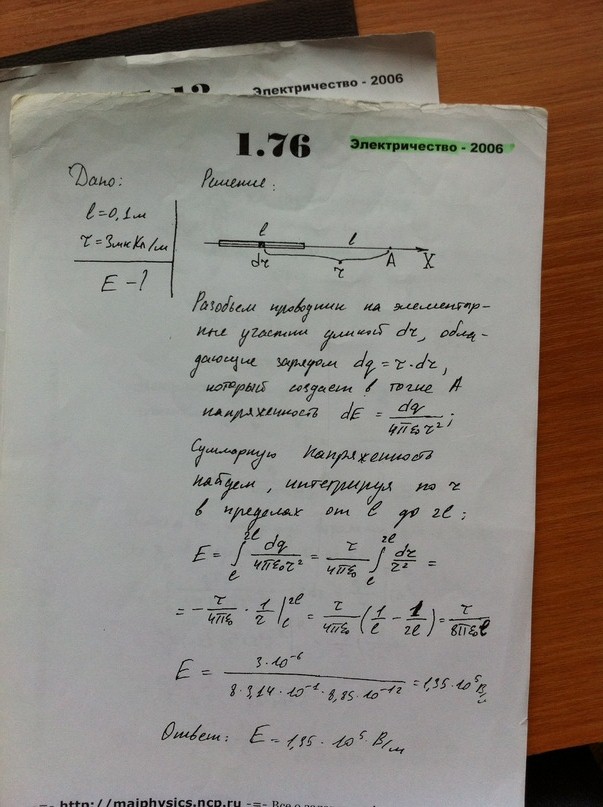 Электричество - 2006
1.76
Электричество - 2006
Дано:
Решение:
l = 0,1 м
τ = 3 мкКл/м
E - ?
l
l
dr
A
X
r
Разобьем проводник на элементар-
ные участки длиной dr, обла-
дающие зарядом dq = τ·dr,
который создает в точке A
напряженность dE = dq/4πε₀r²;
Суммарную напряженность
найдем, интегрируя по r
в пределах от l до 2l;
E = ∫_l^2l dq/4πε₀r² = τ/4πε₀ ∫_l^2l dr/r² =
= -τ/4πε₀ · 1/r |_l^2l = τ/4πε₀ (1/l - 1/2l) = τ/8πε₀l
E = 3·10⁻⁶/8·3,14·10⁻¹·8,85·10⁻¹² = 1,35·10⁵ В/м
Ответ: E = 1,35·10⁵ В/м
-=- http://maiphysics.ncp.ru -=- Все о